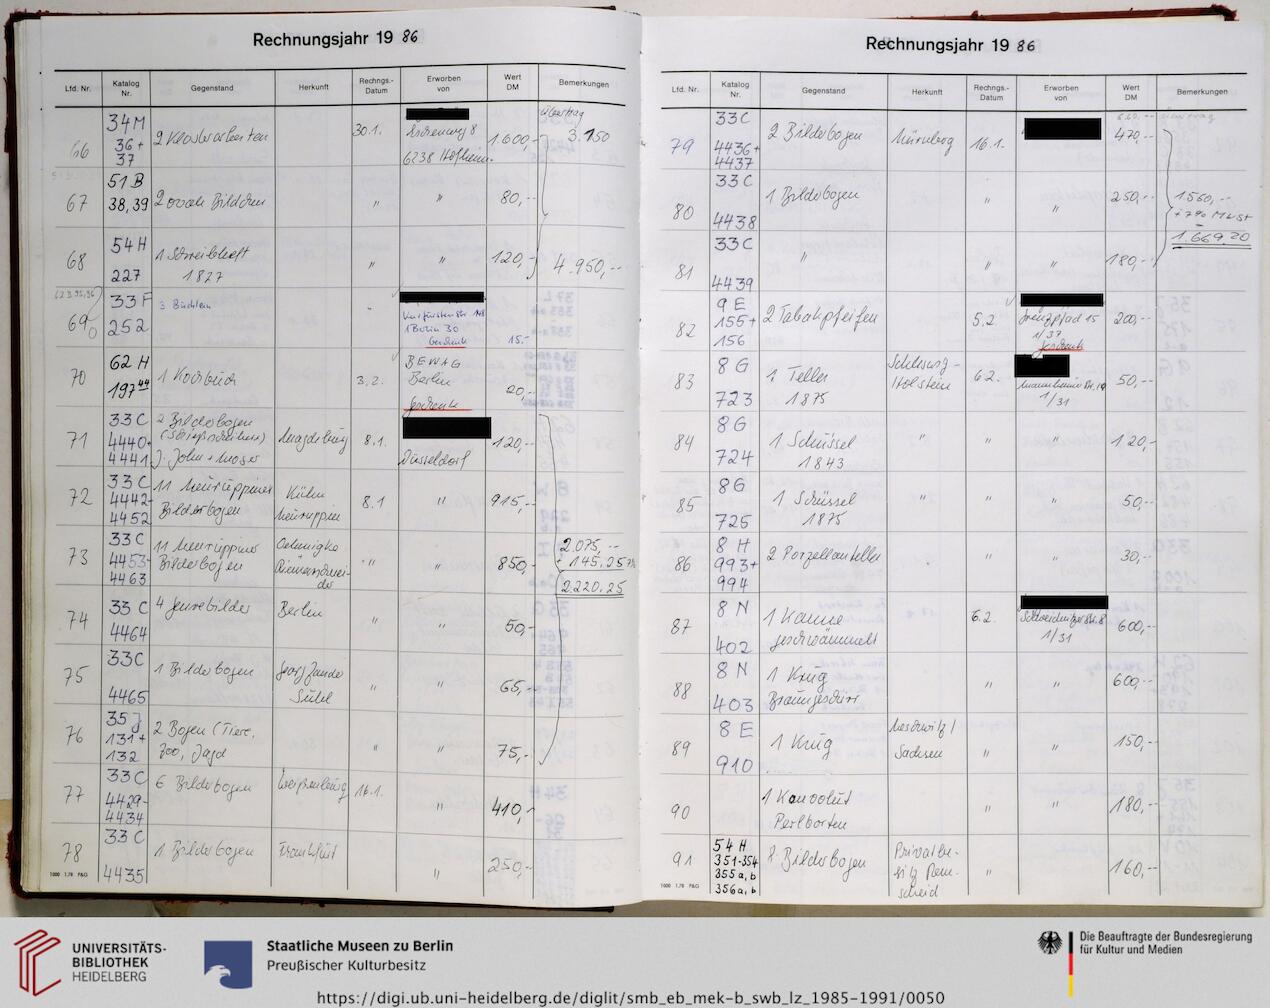 Rechnungsjahr 19 86
Lfd. Nr. Katalog Nr. Gegenstand Herkunft Rechngs.-Datum Erworben von Wert DM Bemerkungen
Übertrag
66 34M 36+ 37 2 Klosterarbeiten 30.1. 6238 Hofheim. 1.600,-- 3.150
67 51B 38,39 2 ovale Bildchen " " 80,--
68 54H 227 1 Schreibheft 1827 " " 120,-- 4.950,--
69 33F 252 3 Büchlein " Kurfürstenstr. 1 Berlin 30 Geschenk 15.-
70 62H 197 44 1 Kochbuch 3.2. BEWAG Berlin Geschenk 20,--
71 33C 4440, 4441 2 Bilderbogen J. John + Moser Magdeburg 8.1. Düsseldorf 120,--
72 33C 4442- 4452 11 Neuruppiner Bilderbogen Kühn Neuruppin 8.1 " 915,--
73 33C 4453- 4463 11 Neuruppiner Bilderbogen Oehmigke Riemenschneider " " 850,-- 2.075,-- + 145,25 7% 2.220.25
74 33C 4464 4 Genrebilder Berlin " " 50,--
75 33C 4465 1 Bilderbogen " " 65,--
76 35J 131+ 132 2 Bogen (Tiere, Zoo, Jagd " " 75,-
77 33C 4429- 4434 6 Bilderbogen Weißenburg 16.1. " 410,-
78 33C 4435 1 Bilderbogen Frankfurt " 250,-
1000 1.78 P&G
Rechnungsjahr 19 86
Lfd. Nr. Katalog Nr. Gegenstand Herkunft Rechngs.-Datum Erworben von Wert DM Bemerkungen
79 33C 4436+ 4437 2 Bilderbogen Nürnberg 16.1. 470,--
80 33C 4438 1 Bilderbogen " " 250,-- 1.560,-- + 7% MwSt 1.669,20
81 33C 4439 " " " 180,--
82 9E 155+ 156 2 Tabakpfeifen 5.2. Grenzpfad 15 1/37 Geschenk 200,--
83 8G 723 1 Teller 1875 Schleswig-Holstein 6.2. 1/31 50,--
84 8G 724 1 Schüssel 1843 " " " 120,--
85 8G 725 1 Schüssel 1875 " " " 50,--
86 8H 993+ 994 2 Porzellanteller " " " 30,--
87 8N 402 1 Kanne geschwämmelt 6.2. Schweidnitzerstr. 8 1/31 600,--
88 8N 403 1 Krug Braungeschirr " " 600,--
89 8E 910 1 Krug Sachsen " " 150,--
90 1 Konvolut Perlborten " " 180,--
91 54H 351-354 355a,b 356a,b 8 Bilderbogen " " 160,--
1000 1.78 P&G
UNIVERSITÄTS-
BIBLIOTHEK
HEIDELBERG
Staatliche Museen zu Berlin
Preußischer Kulturbesitz
Die Beauftragte der Bundesregierung
für Kultur und Medien
https://digi.ub.uni-heidelberg.de/diglit/smb_eb_mek-b_swb_lz_1985-1991/0050